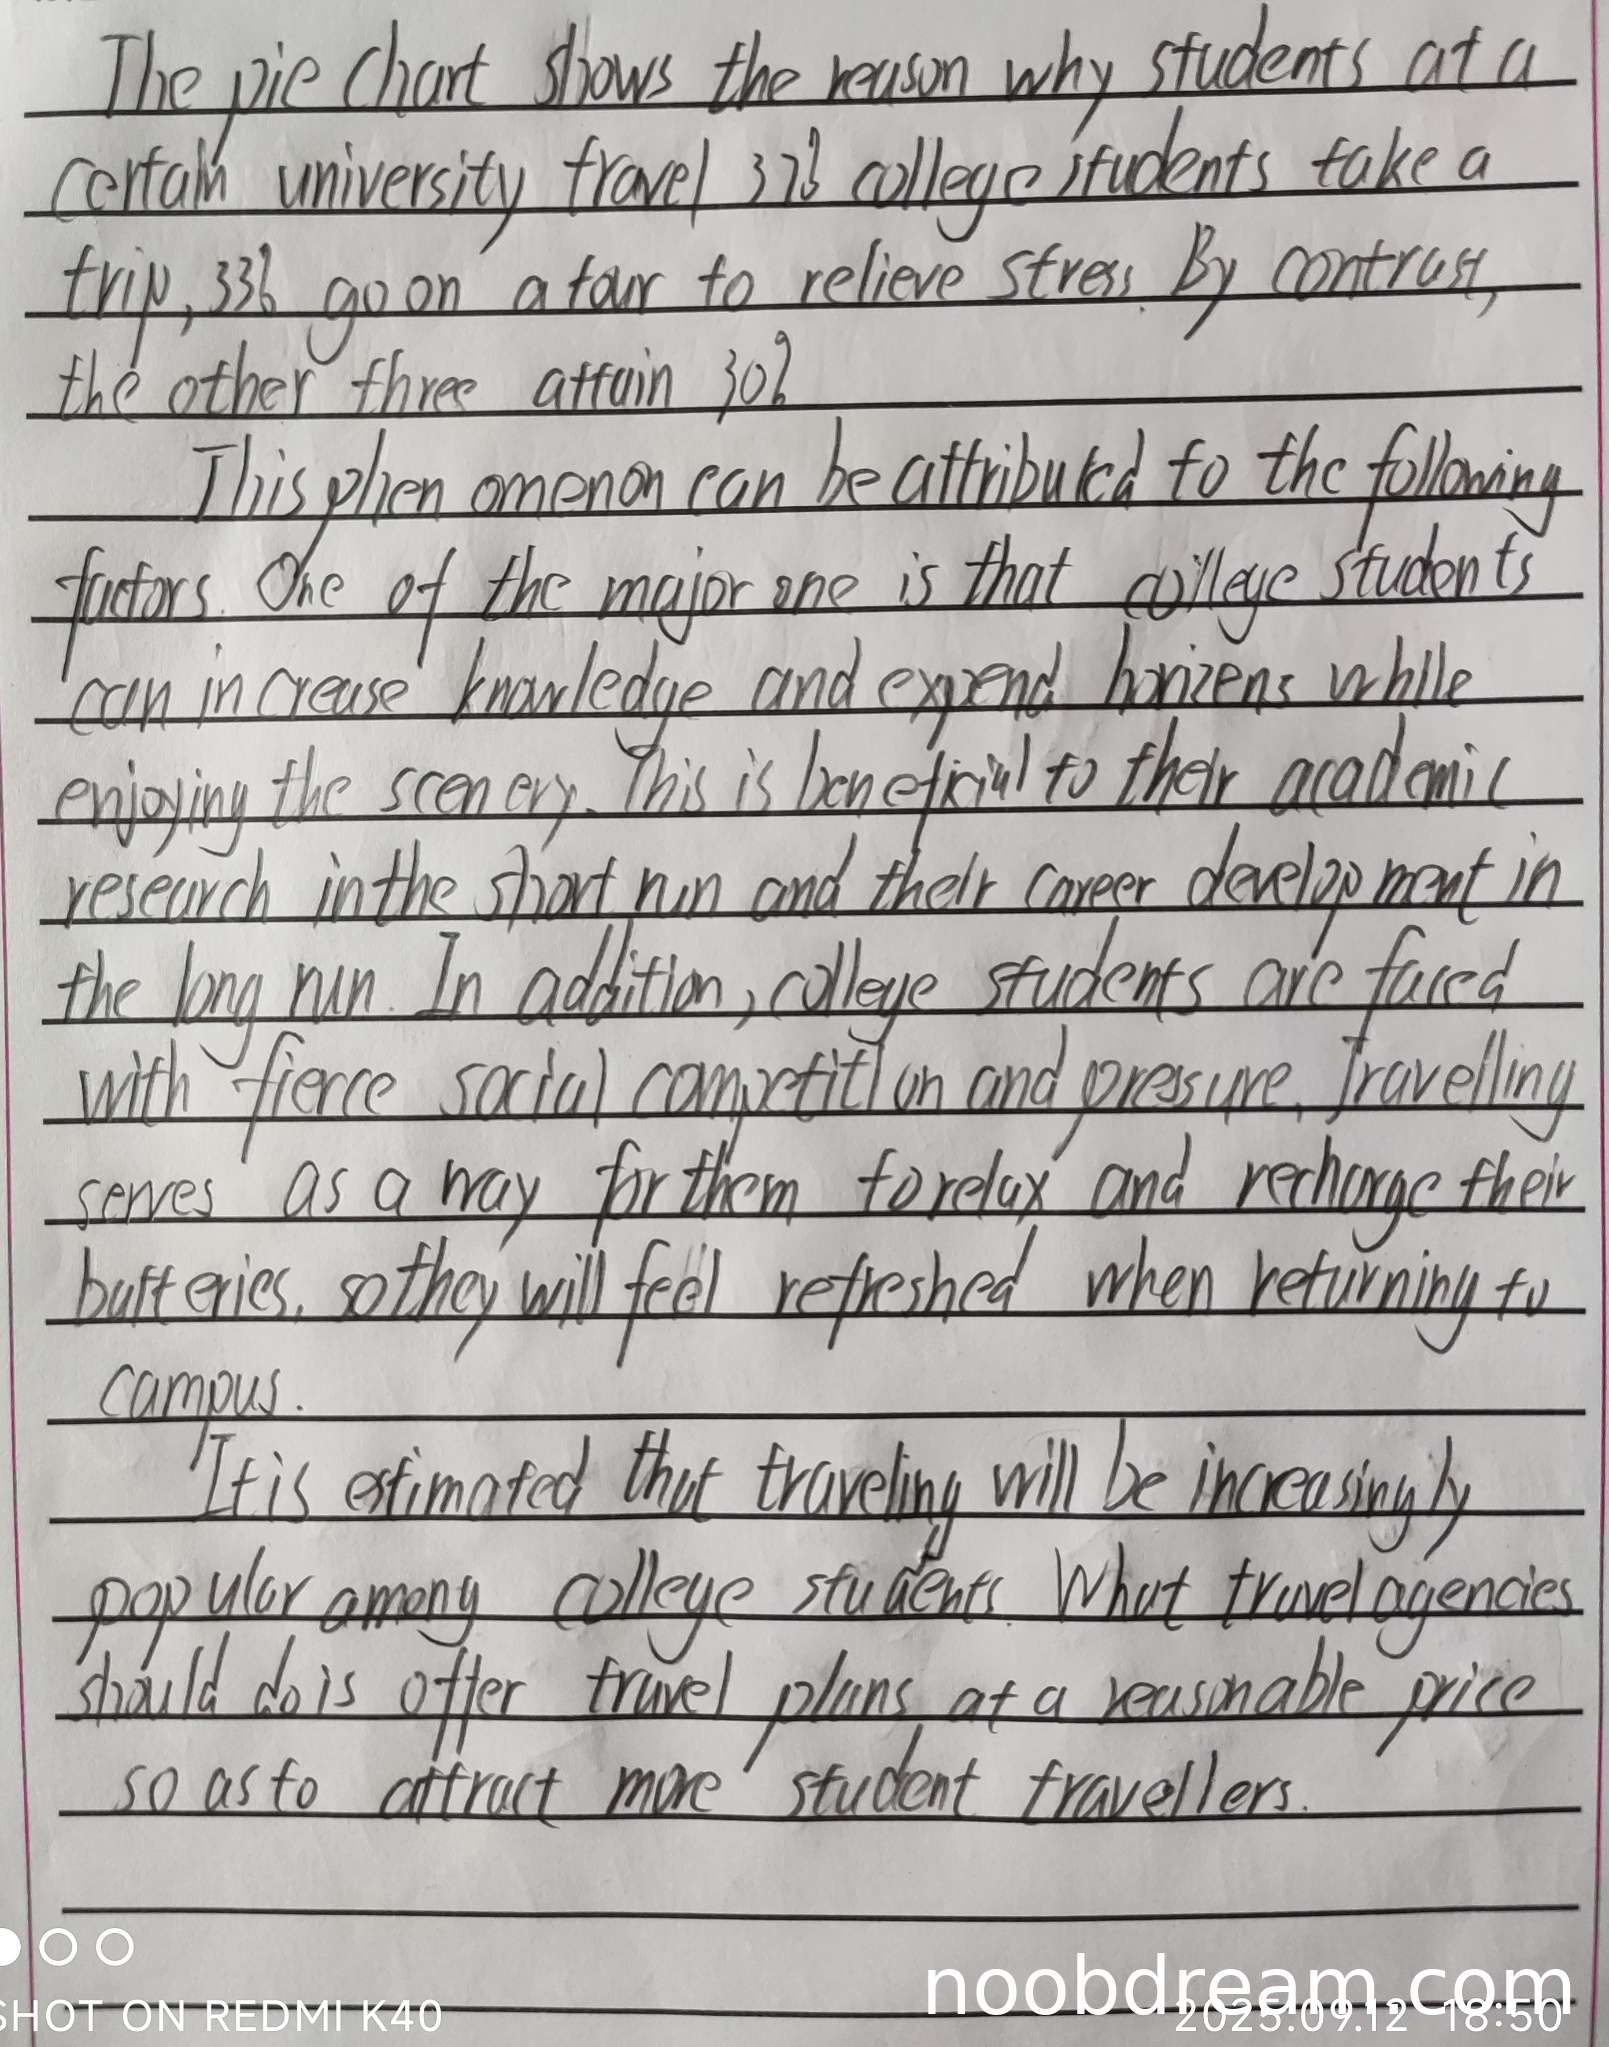 The pie chart shows the reason why students at a
certain university travel 37% college students take a
trip, 33% go on a tour to relieve stress. By contrast,
the other three attain 30%
This phenomenon can be attributed to the following
factors. One of the major one is that college students
can increase knowledge and expend horizens while
enjoying the scenery. This is beneficial to their academic
research in the short run and their career development in
the long run. In addition, college students are faced
with fierce social competition and pressure. Travelling
serves as a way for them to relax and recharge their
batteries, so they will feel refreshed when returning to
campus.
It is estimated that traveling will be increasingly
popular among college students. What travel agencies
should do is offer travel plans at a reasonable price
so as to attract more student travellers.
noobdream.com
SHOT ON REDMI K40
2025.09.12 18:50